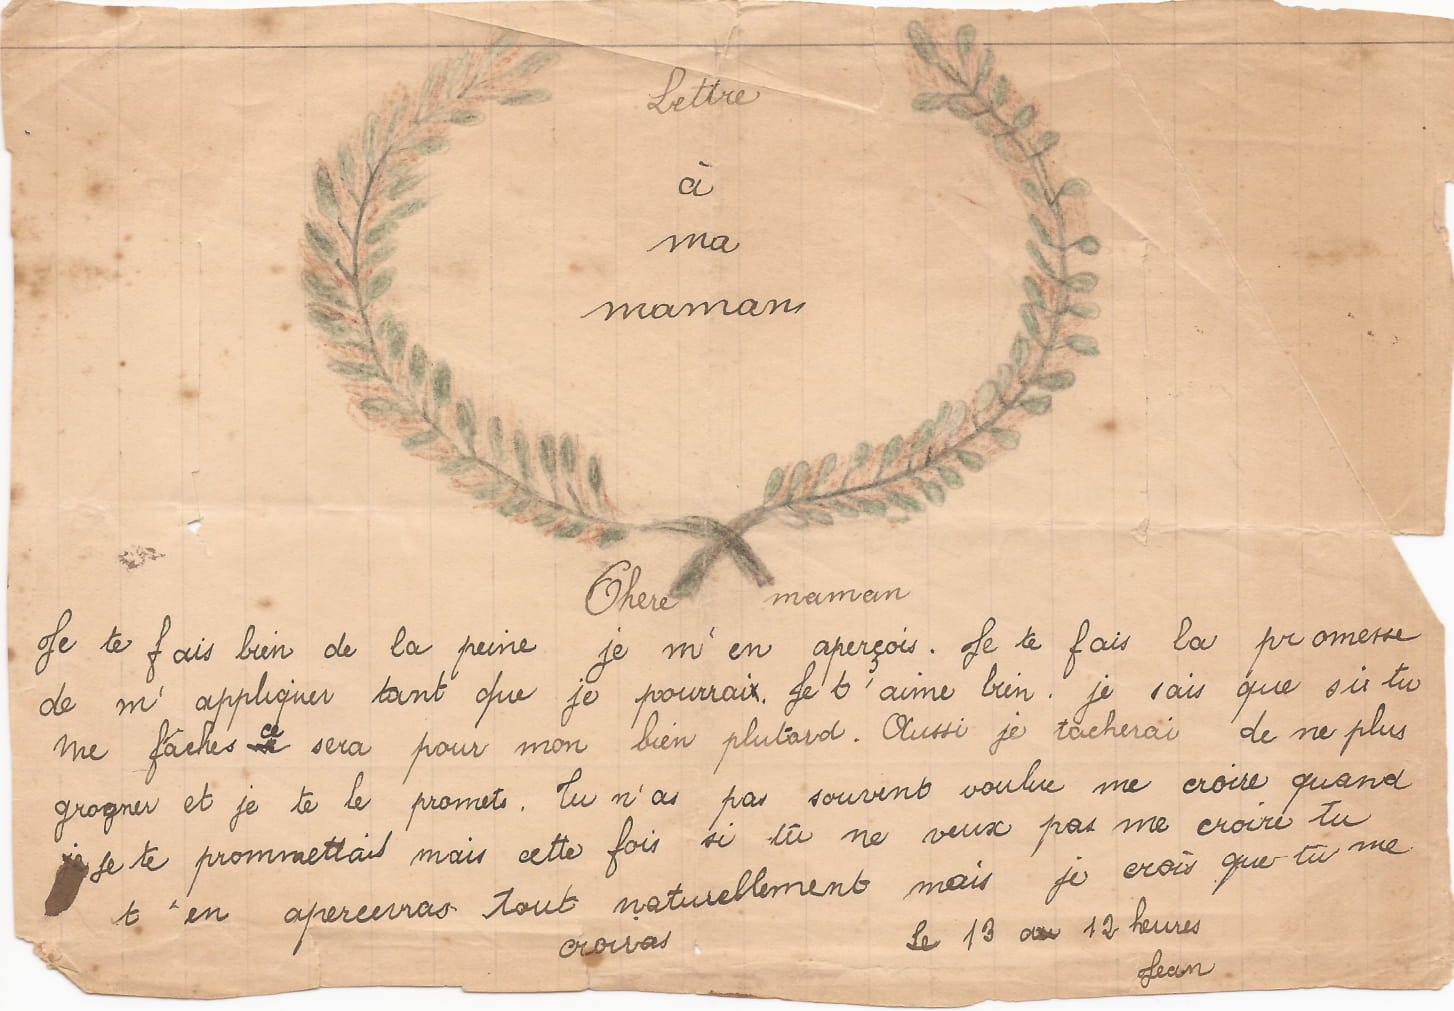 Lettre
à
ma
maman
Chere maman
Je te fais bien de la peine je m'en aperçois. Je te fais la promesse
de m'appliquer tant que je pourrai. Je t'aime bien. je sais que si tu
me fâches ce sera pour mon bien plutard. Aussi je tacherai de ne plus
grogner et je te le promets. Tu n'as pas souvent voulue me croire quand
je te prommettais mais cette fois si tu ne veux pas me croire tu
t'en apercevras tout naturellement mais je crois que tu me
croiras
Le 13 12 heures
Jean